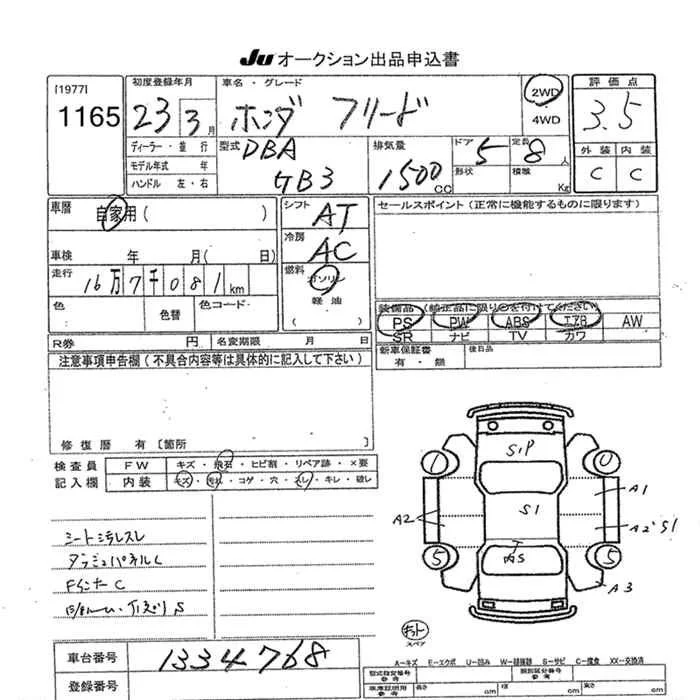 Ju オークション出品申込書
[1977]
1165
初度登録年月
23 3月
車名・グレード
ホンダ フリード
2WD
4WD
評価点
3.5
ディーラー・並行
モデル年式 年
ハンドル 左・右
型式 DBA
GB3
排気量
1500CC
ドア 5
形状
定員 8人
積載 Kg
外装 内装
C C
車歴 自家用( )
シフト AT
セールスポイント(正常に機能するものに限ります)
車検 年 月( 日)
冷房 AC
走行 16万7千081km
燃料 ガソリン
軽油
( )
色 色替 色コード
装備品(純正品に限り○を付けてください)
PS PW ABS エアB AW
SR ナビ TV カワ
R券 円 名変期限 月 日
新車保証書
有・無
後日品
注意事項申告欄(不具合内容等は具体的に記入して下さい)
修復歴 有〔箇所 〕
検査員 FW キズ・飛石・ヒビ割・リペア跡・×要
記入欄 内装 キズ・汚れ・コゲ・穴・スレ・キレ・破レ
シート汚レスレ
ダッシュパネルC
FインナーC
S1P
A1
A2
S1
A2 S1
A5
A3
5
5
キット
スペア
車台番号 1334768
登録番号
A-キズ E-エクボ U-凹み W-補修跡 S-サビ C-腐食 XX-交換済
型式指定番号
参考
類別区分番号
参考
車庫証明用
参考
長さ cm 幅 cm 高さ cm